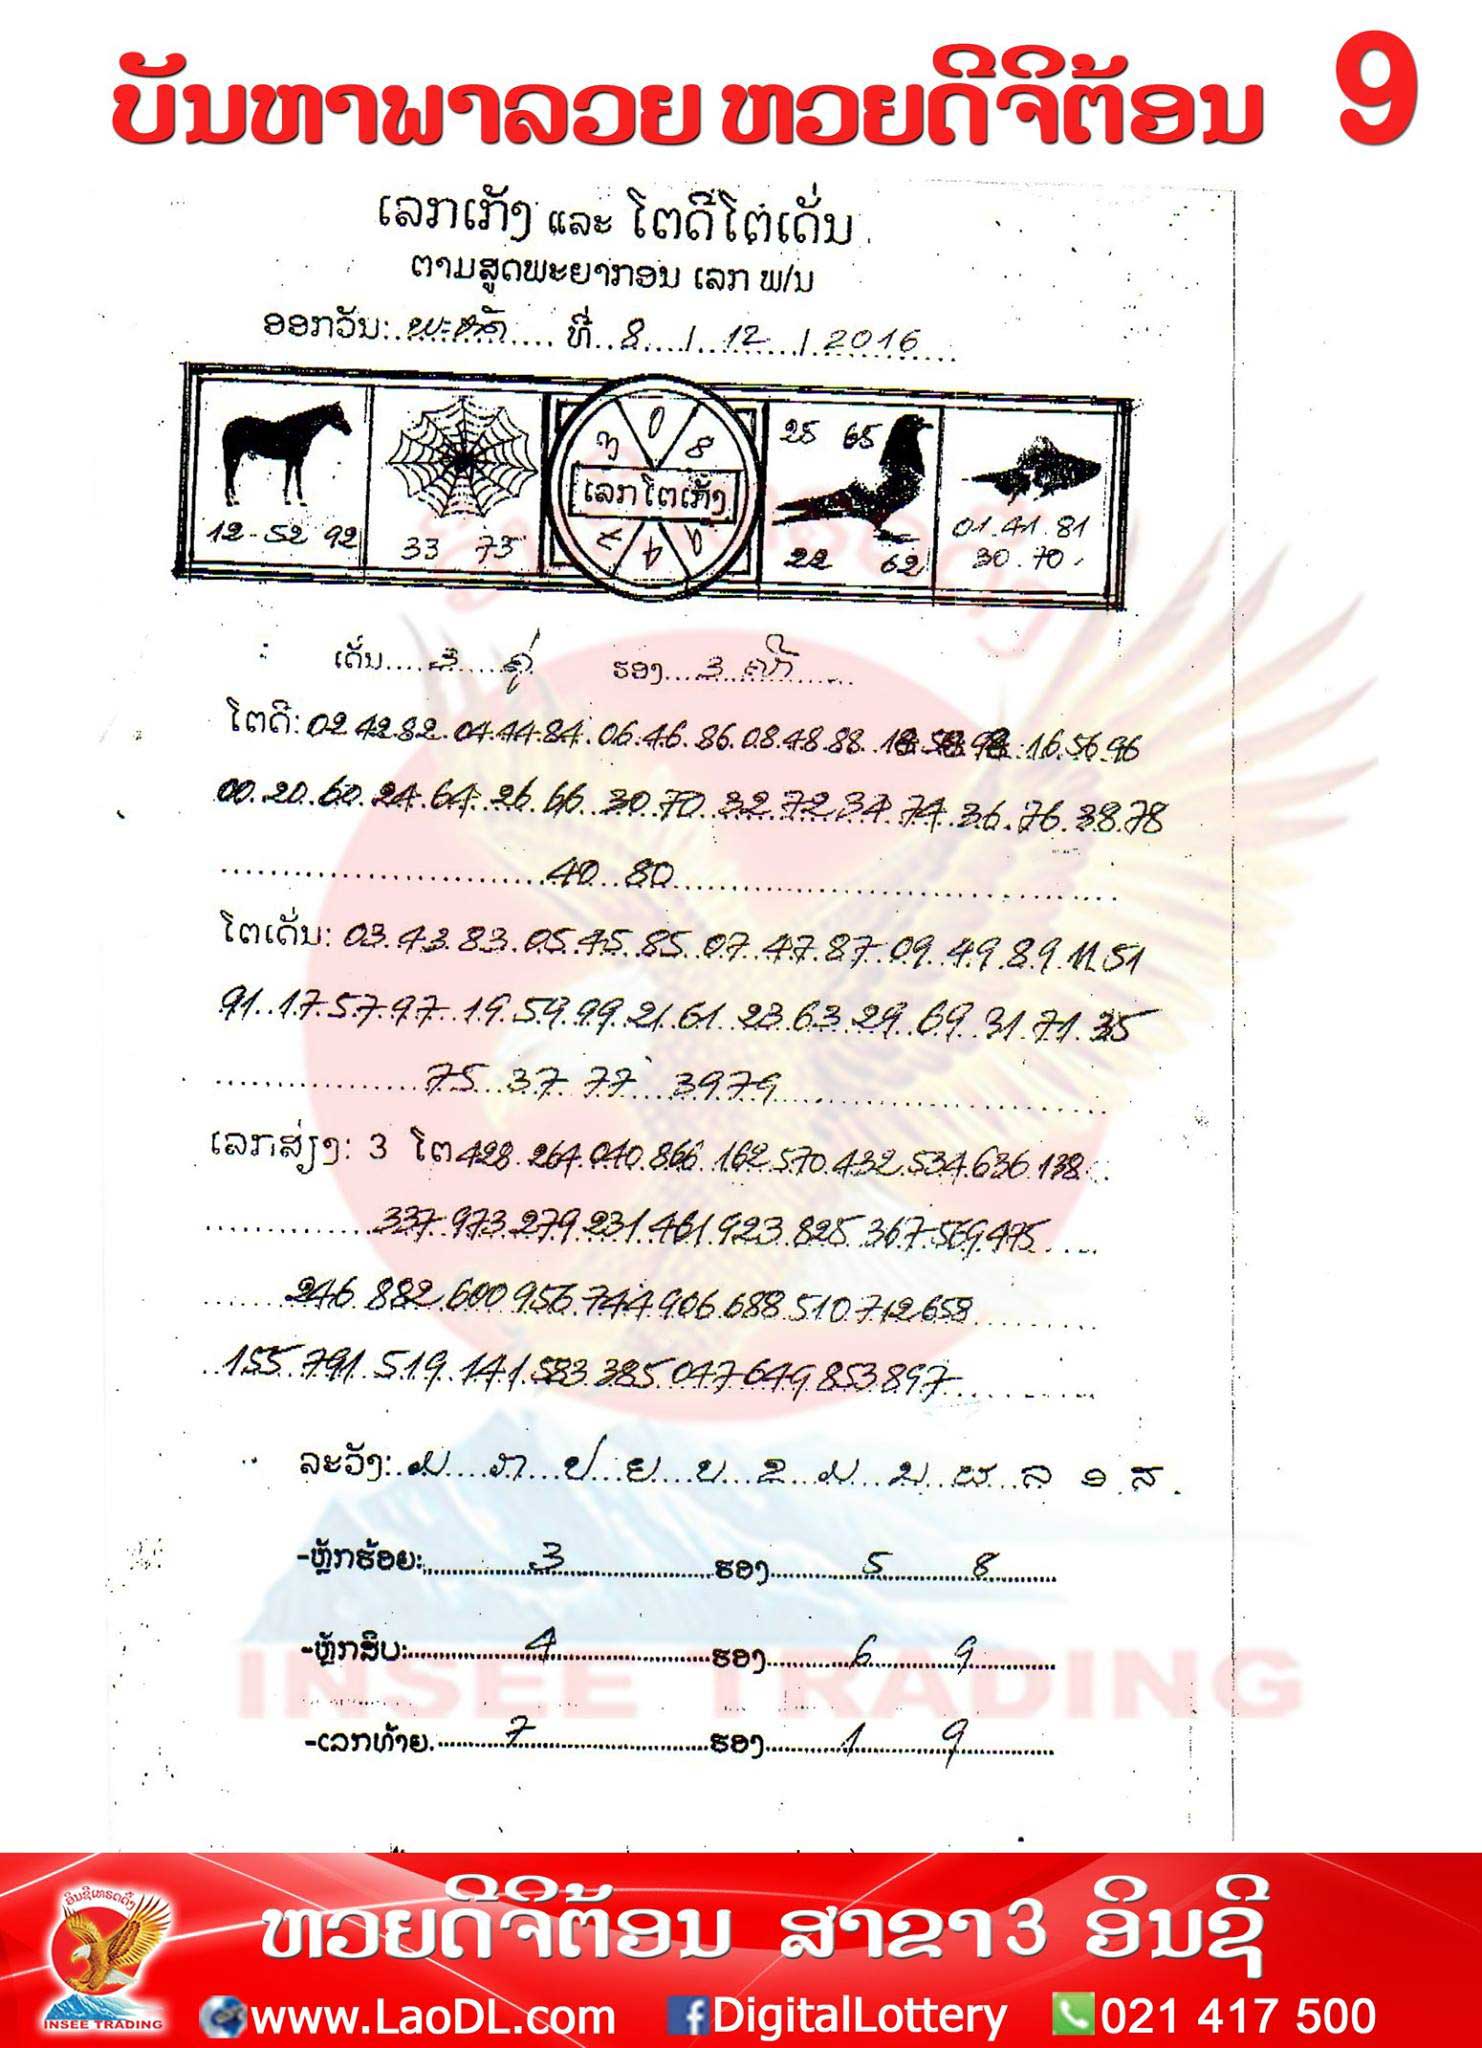 ບັນຫາພາລວຍ ຫວຍດີຈິຕ້ອນ 9
ເລກເກັງ ແລະ ໂຕດີໂຕເດັ່ນ
ຕາມສູດພະຍາກອນ ເລກ ພ/ນ
ອອກວັນ: ພະຫັດ ທີ່ 8 / 12 / 2016
12-52 92
33 73
3 0 8
ເລກໂຕເກັງ
7 4 1
25 65
22 62
01.41.81
30.70
ເດັ່ນ 3 ຄູ່ ຮອງ 3 ຄໍ້າ
ໂຕດີ: 02 42.82.04.44.84.06.46.86.08.48.88.18.58.98.16.56.96
00.20.60.24.64.26.66.30.70.32.72.34.74.36.76.38.78
40 80
ໂຕເດັ່ນ: 03.43.83.05.45.85.07.47.87.09.49.89.11.51
91.17.57.97.19.59.99.21.61.23.63.29.69.31.71.35
75 37 77 39 79
ເລກສ່ຽງ: 3 ໂຕ 428.264.040.866.162.570.432.534.636.138
337.973.279.231.461.923.825.367.569.475
246.882.600.956.744.906.688.510.712.658
155.791.519.141.583.385.047.649.853.897
ລະວັງ: ມ ກ ປ ຍ ບ ຂ ມ ນ ຜ ລ ອ ສ
-ຫຼັກຮ້ອຍ: 3 ຮອງ 5 8
-ຫຼັກສິບ: 4 ຮອງ 6 9
-ເລກທ້າຍ. 7 ຮອງ 1 9
INSEE TRADING
ອິນຊີເທຣດດິ້ງ
INSEE TRADING
ຫວຍດີຈິຕ້ອນ ສາຂາ3 ອິນຊີ
www.LaoDL.com DigitalLottery 021 417 500